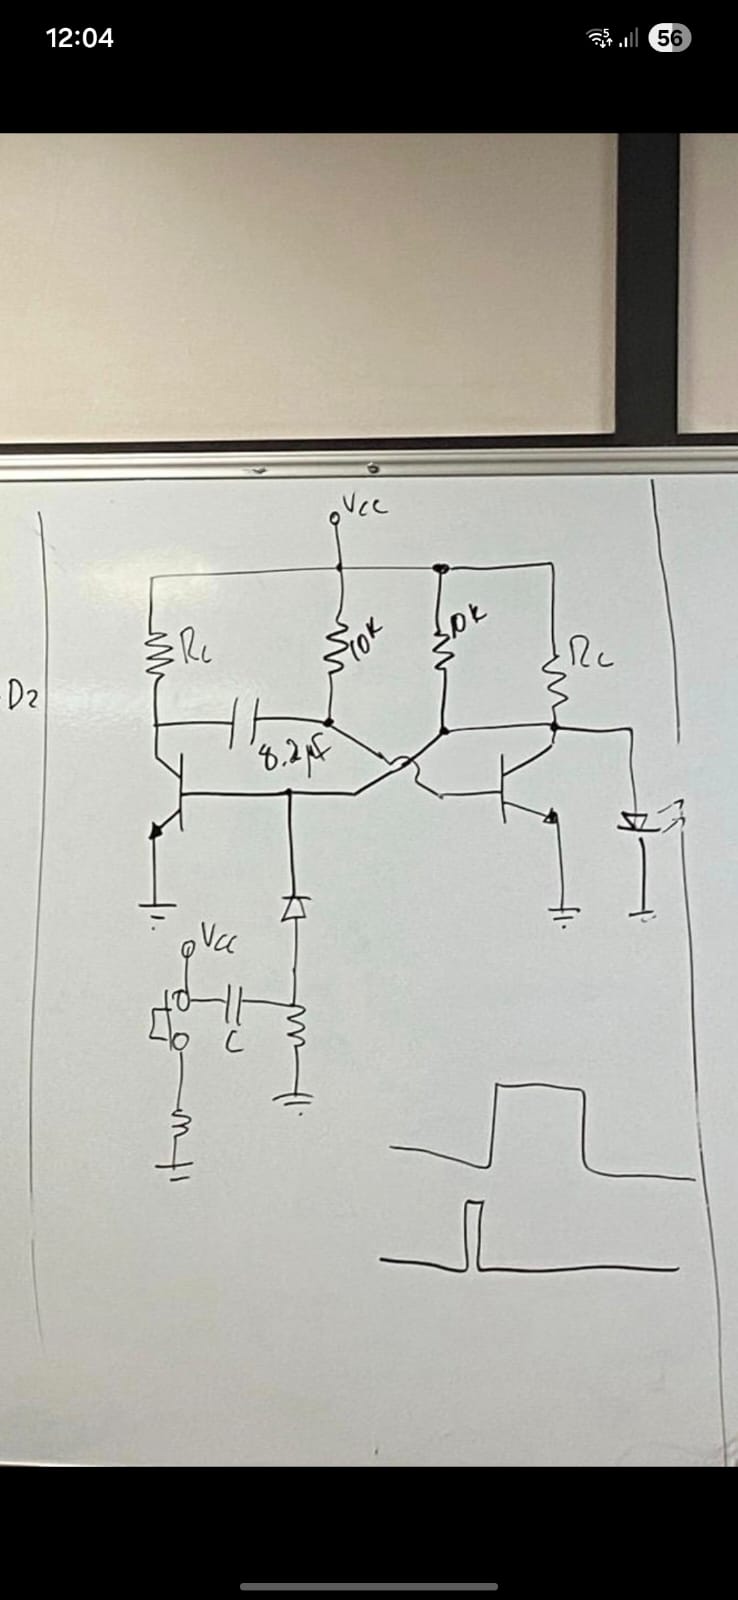 12:04
56
Vcc
Rc
10K
10K
Rc
D2
8.2µF
Vcc
C